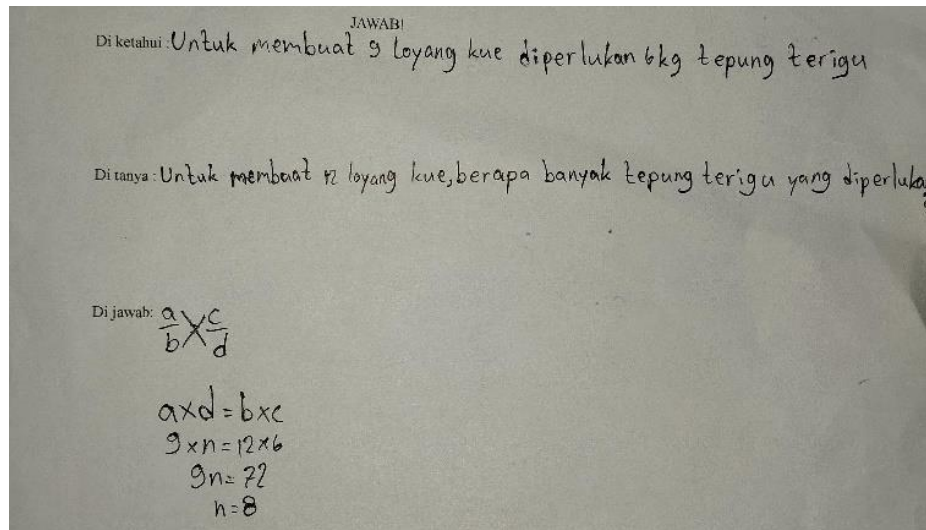 JAWAB!
Di ketahui : Untuk membuat 9 loyang kue diperlukan 6kg tepung terigu
Di tanya : Untuk membuat 12 loyang kue, berapa banyak tepung terigu yang diperluka
Di jawab: a/b × c/d
a×d = b×c
9×n = 12×6
9n = 72
n = 8